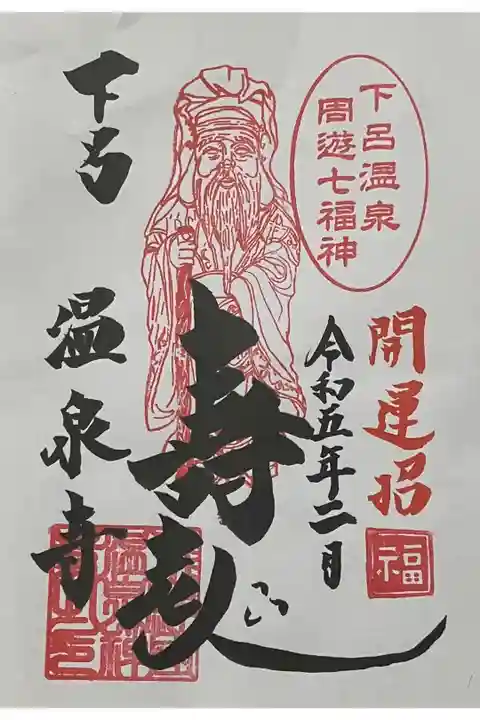 下呂温泉
周遊七福神
開運招福
令和五年二月
寿老人
下呂
温泉寺